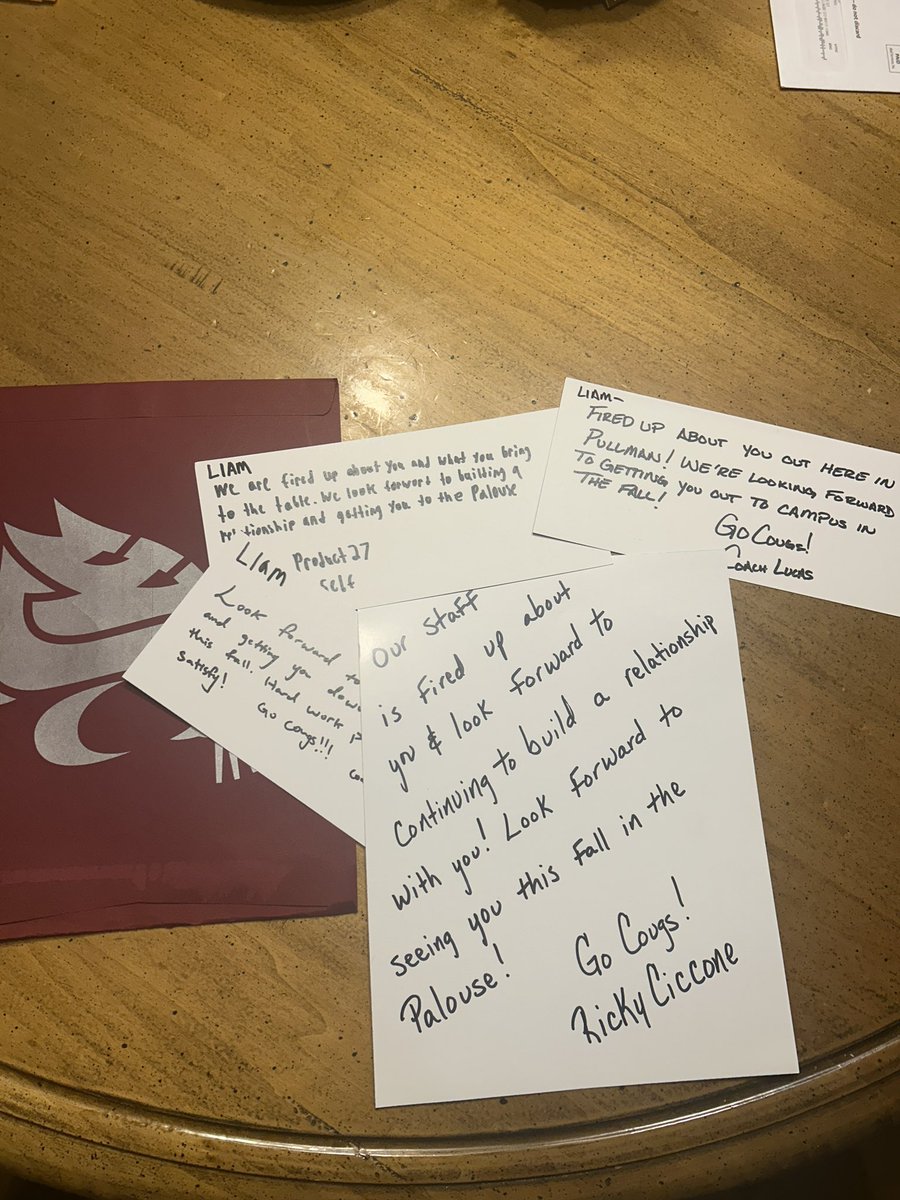 LIAM
We are fired up about you and what you bring
to the table. We look forwort to builting a
and getting you to the Palouse
LIAM
Look forward to
and getting you dow
this fall. Hard work
Satisfy!
Go Cougs!!!
LIAM-
FIRED UP ABOUT YOU OUT HERE IN
PULLMAN! WE'RE LOOKING FORWARD
TO GETTING YOU OUT TO CAMPUS IN
THE FALL!
GO COUGS!
COACH LUCAS
Our staff
is fired up about
you & look forward to
Continuing to build a relationship
with you! Look forward to
seeing you this fall in the
Palouse!
Go Cougs!
Ricky Ciccone
do not discard
PAID